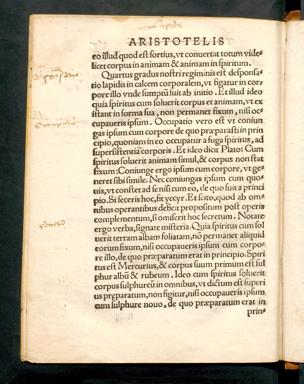 Lapidis
ARISTOTELIS
eo illud quod est fortius, vt conuertat totum vide
licet corpus in animam & animam in spiritum.
Quartus gradus nostri regiminis est desponsa
tio lapidis in calcem corporalem, vt figatur in cor
pore illo vnde sumpsit fuit ab initio. Et illud ideo
quia spiritus cum soluerit corpus et animam, vt ex
istant in forma sua, non permanet fixum, nisi oc
cupaueris ipsum. Occupatio vero est vt coniun
gas ipsum cum corpore de quo præparasti in prin
cipio, quoniam in eo occupatur a fuga spiritus, ad
supersistentiã corporis. Et ideo dicit Plato: Cum
spiritus soluerit animam simul, & corpus non stat
fixum: Coniunge ergo ipsum cum corpore, vt ge
neret sibi simile. Nec coniungas ipsum cum quo
uis, vt conster ad se nisi cum eo, de quo fuit a princi
pio. Si feceris hoc, fit vester. Et scito, quod ab om
nibus operantibus deficit propositum post operis
complementum, si omiserit hoc secretum. Notate
ergo verba, signate misteria. Quia spiritus cum sol
uerit terram albam foliatam, nõ permanet aliquid
eorum fixum, nisi occupaueris ipsum cum corpo
re illo, de quo præparatum erat in principio. Spiri
tus est Mercurius, & corpus suum primum est sul
phur albũ & rubeum. Ideo cum spiritus soluerit
corpus sulphureũ in omnibus, vt dictum est superi
us præparatum, non figitur, nisi occupaueris ipsum
cum sulphure nouo, de quo præparatum erat in
prin=